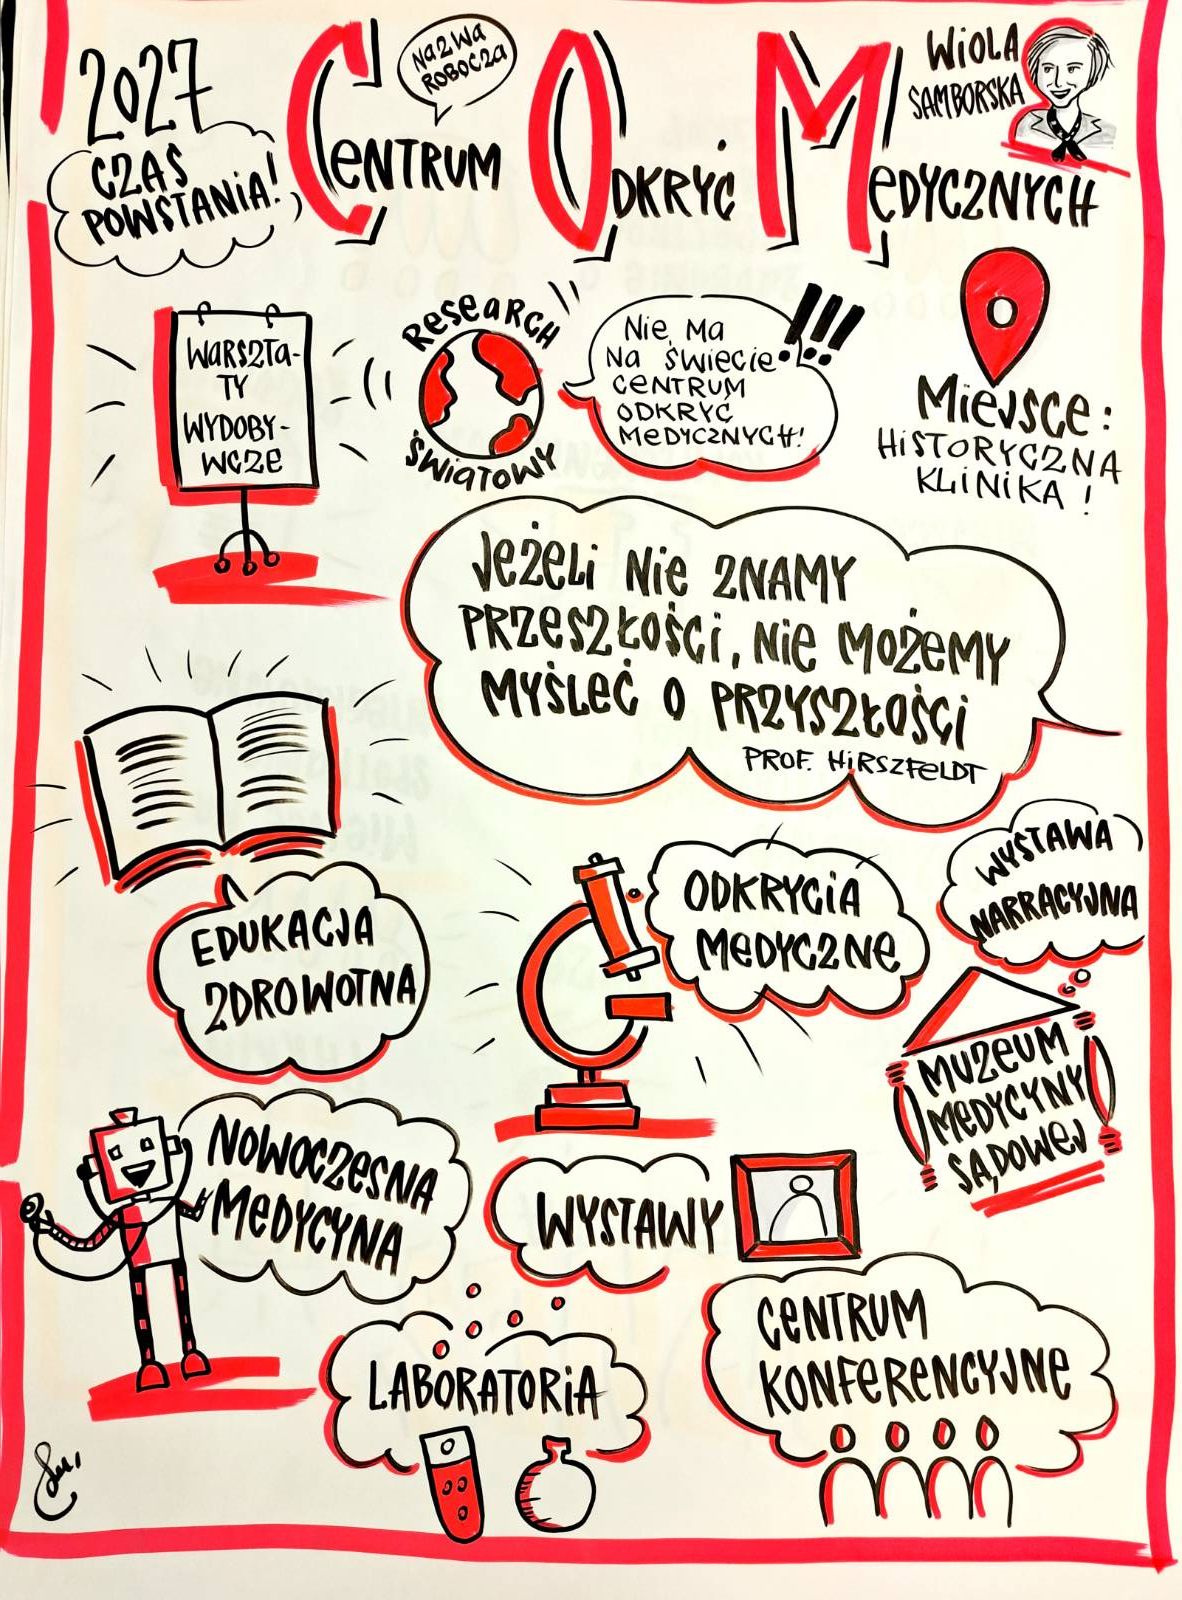 2027
CZAS
POWSTANIA!
NAZWA
ROBOCZA
CENTRUM ODKRYĆ MEDYCZNYCH
WIOLA
SAMBORSKA
WARSZTA-
TY
WYDOBY-
WCZE
RESEARCH
ŚWIATOWY
NIE MA
NA ŚWIECIE
CENTRUM
ODKRYĆ
MEDYCZNYCH!
!!!
MIEJSCE:
HISTORYCZNA
KLINIKA!
JEŻELI NIE ZNAMY
PRZESZŁOŚCI, NIE MOŻEMY
MYŚLEĆ O PRZYSZŁOŚCI
PROF. HIRSZFELDT
EDUKACJA
ZDROWOTNA
ODKRYCIA
MEDYCZNE
WYSTAWA
NARRACYJNA
MUZEUM
MEDYCYNY
SĄDOWEJ
NOWOCZESNA
MEDYCYNA
WYSTAWY
LABORATORIA
CENTRUM
KONFERENCYJNE